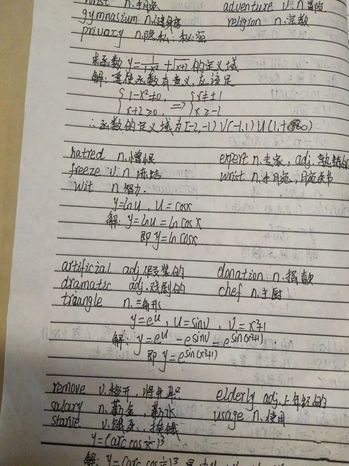 adventure n.冒险
gymnasium n.健身房 religion n.宗教
privacy n.隐私;秘密
求函数 y=1/(1-x²)+√(x+2) 的定义域
解:要使函数有意义,应满足
{1-x²≠0, {x≠±1
{x+2≥0, ⇒ {x≥-1
∴函数的定义域为[-2,-1)∪(-1,1)∪(1,+∞)
hatred n.憎恨 expert n.专家, adj.
freeze v. n. 冻结 wrist n.
wit n.智力.
y=lnu, u=cosx
解: y=lnu=lncosx
即 y=lncosx
artificial adj.假装的 donation n.捐款
dramatic adj.戏剧的 chef n.主厨
triangle n.三角形
y=e^u, u=sinv, v=x²+1
解: y=e^u=e^sinv=e^sin(x²+1)
即 y=e^sin(x²+1)
remove v.移开 elderly adj.上年纪的
salary n.薪金,薪水 usage n.使用
starve v.
y=(arccos 1/x)³
解: y=(arccos 1/x)³